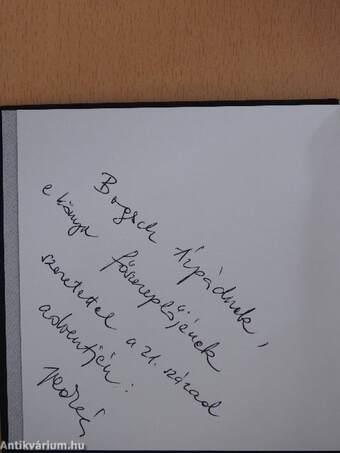 Bogsch Árpádnak,
e könyv főszereplőjének
szeretettel a 21. század
adventjén:
Antikvárium.hu